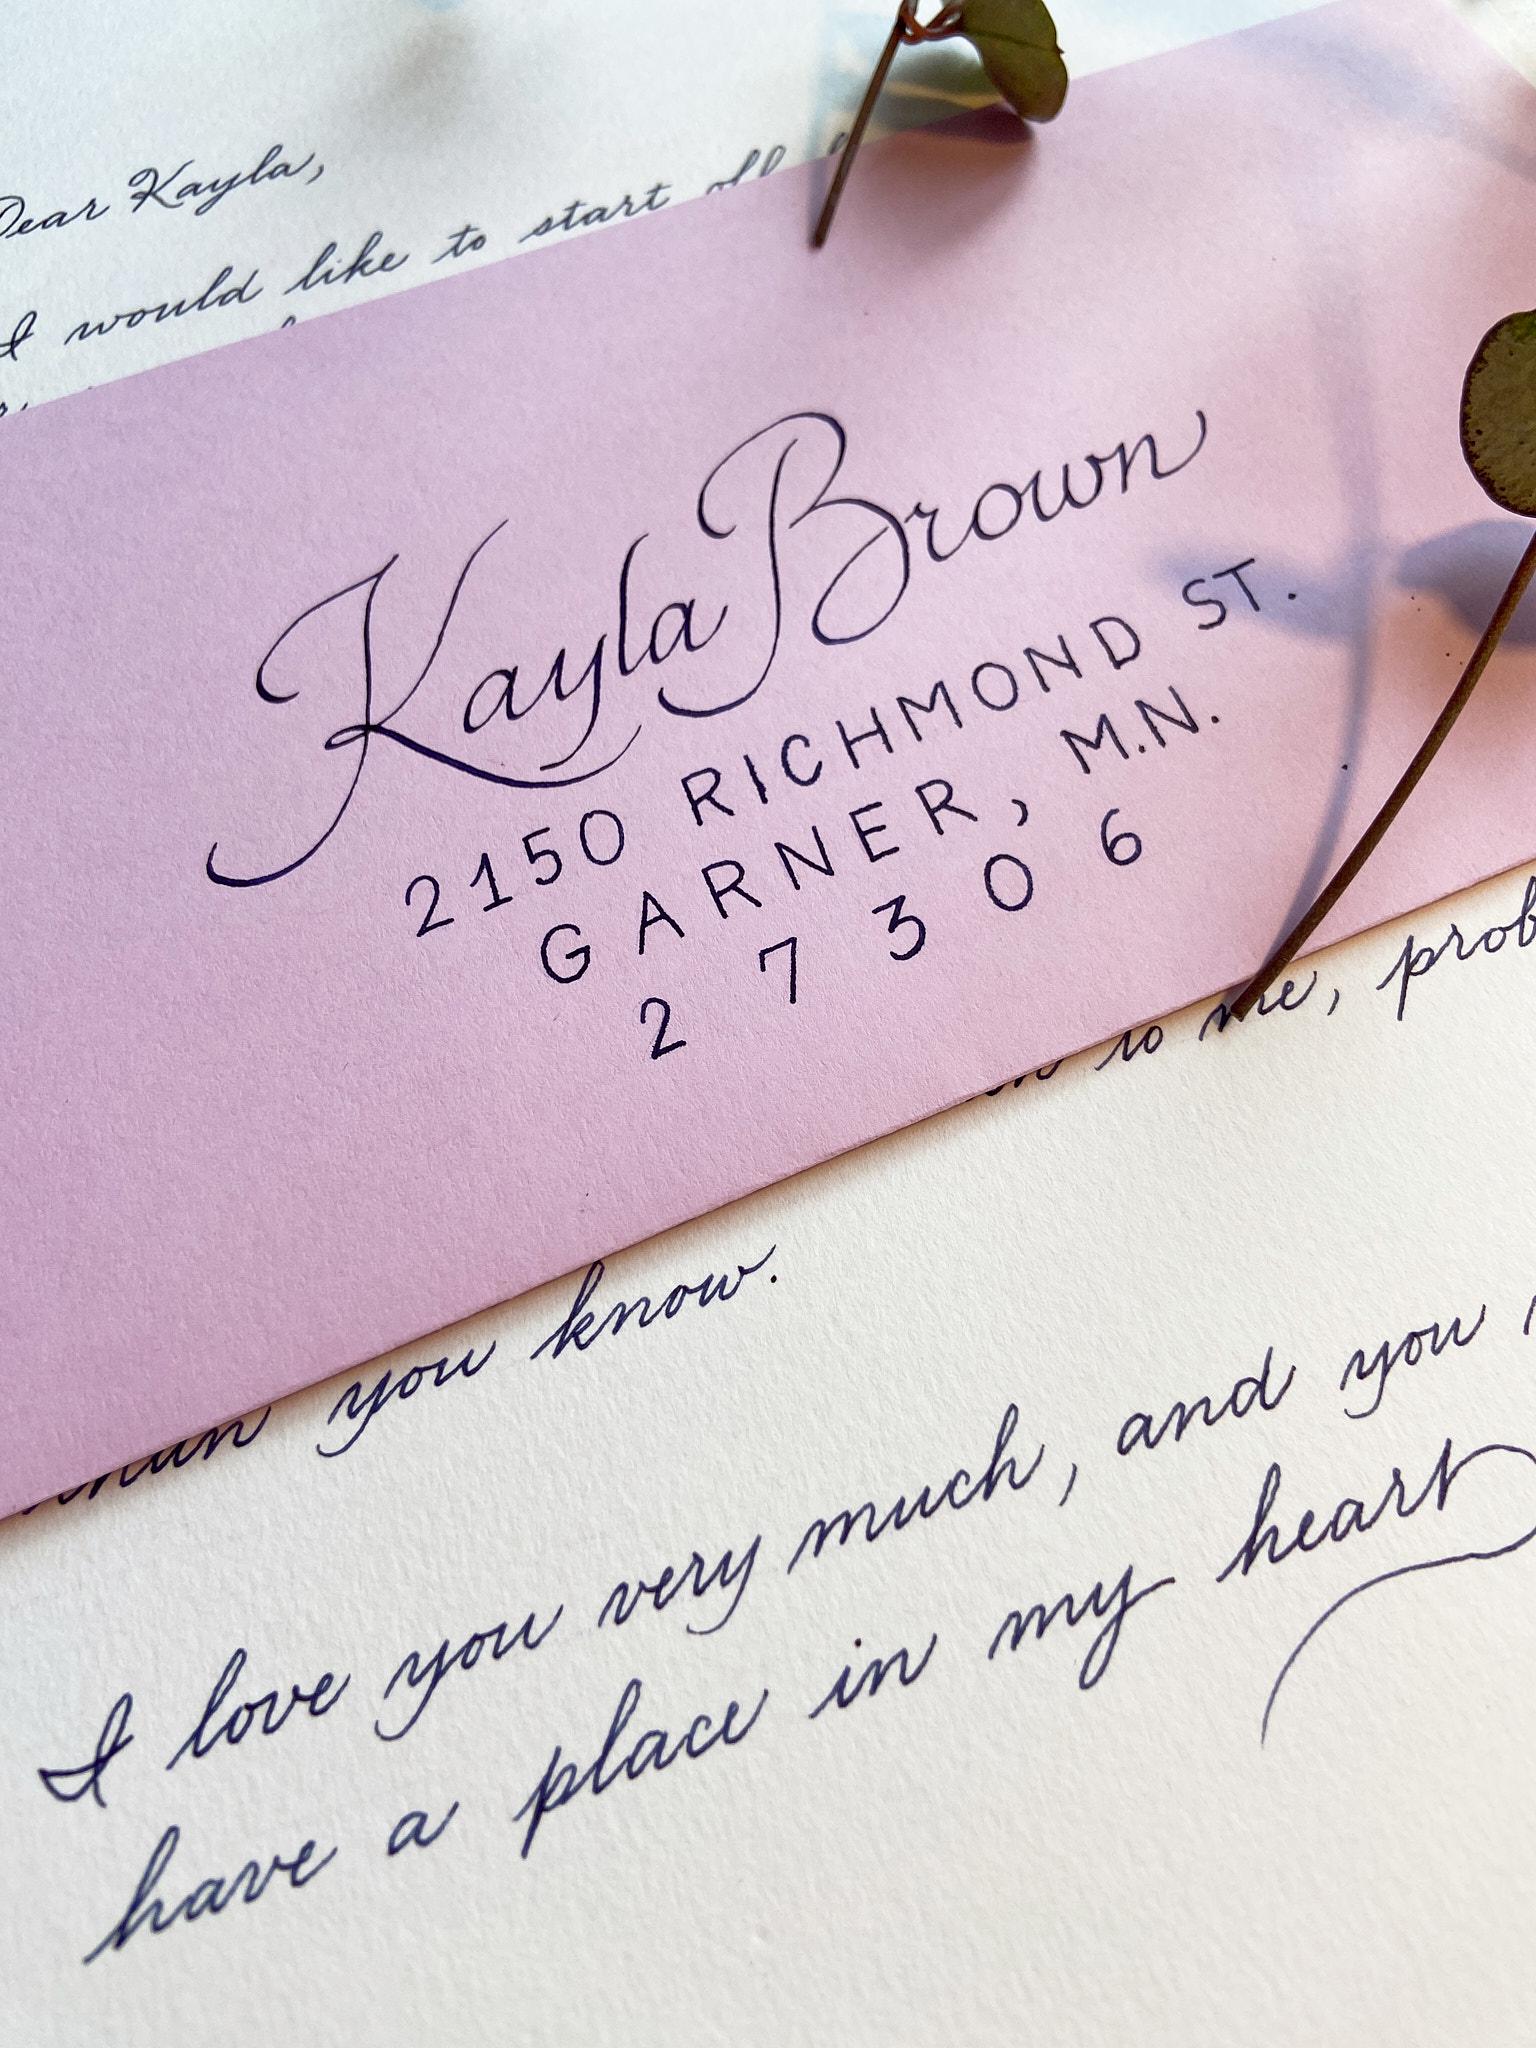 Dear Kayla,
I would like to start off
Kayla Brown
2150 RICHMOND ST.
GARNER, M.N.
27306
to me,
than you know.
I love you very much, and you
have a place in my heart